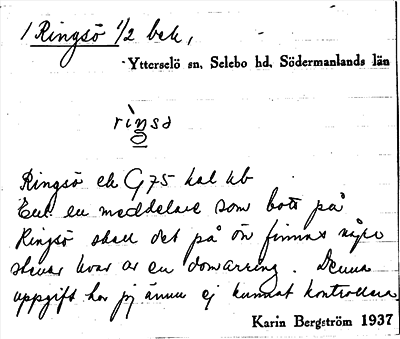 1 Ringsö 1/2 bek,
Ytterselö sn, Selebo hd, Södermanlands län
rìŋsɔ
Ringsö ek G 75 kal kb
Enl. en meddelare som bott på
Ringsö skall det på ön finnas några
stenar kvar av en domarring. Denna
uppgift har jag ännu ej kunnat kontrollera.
Karin Bergström 1937